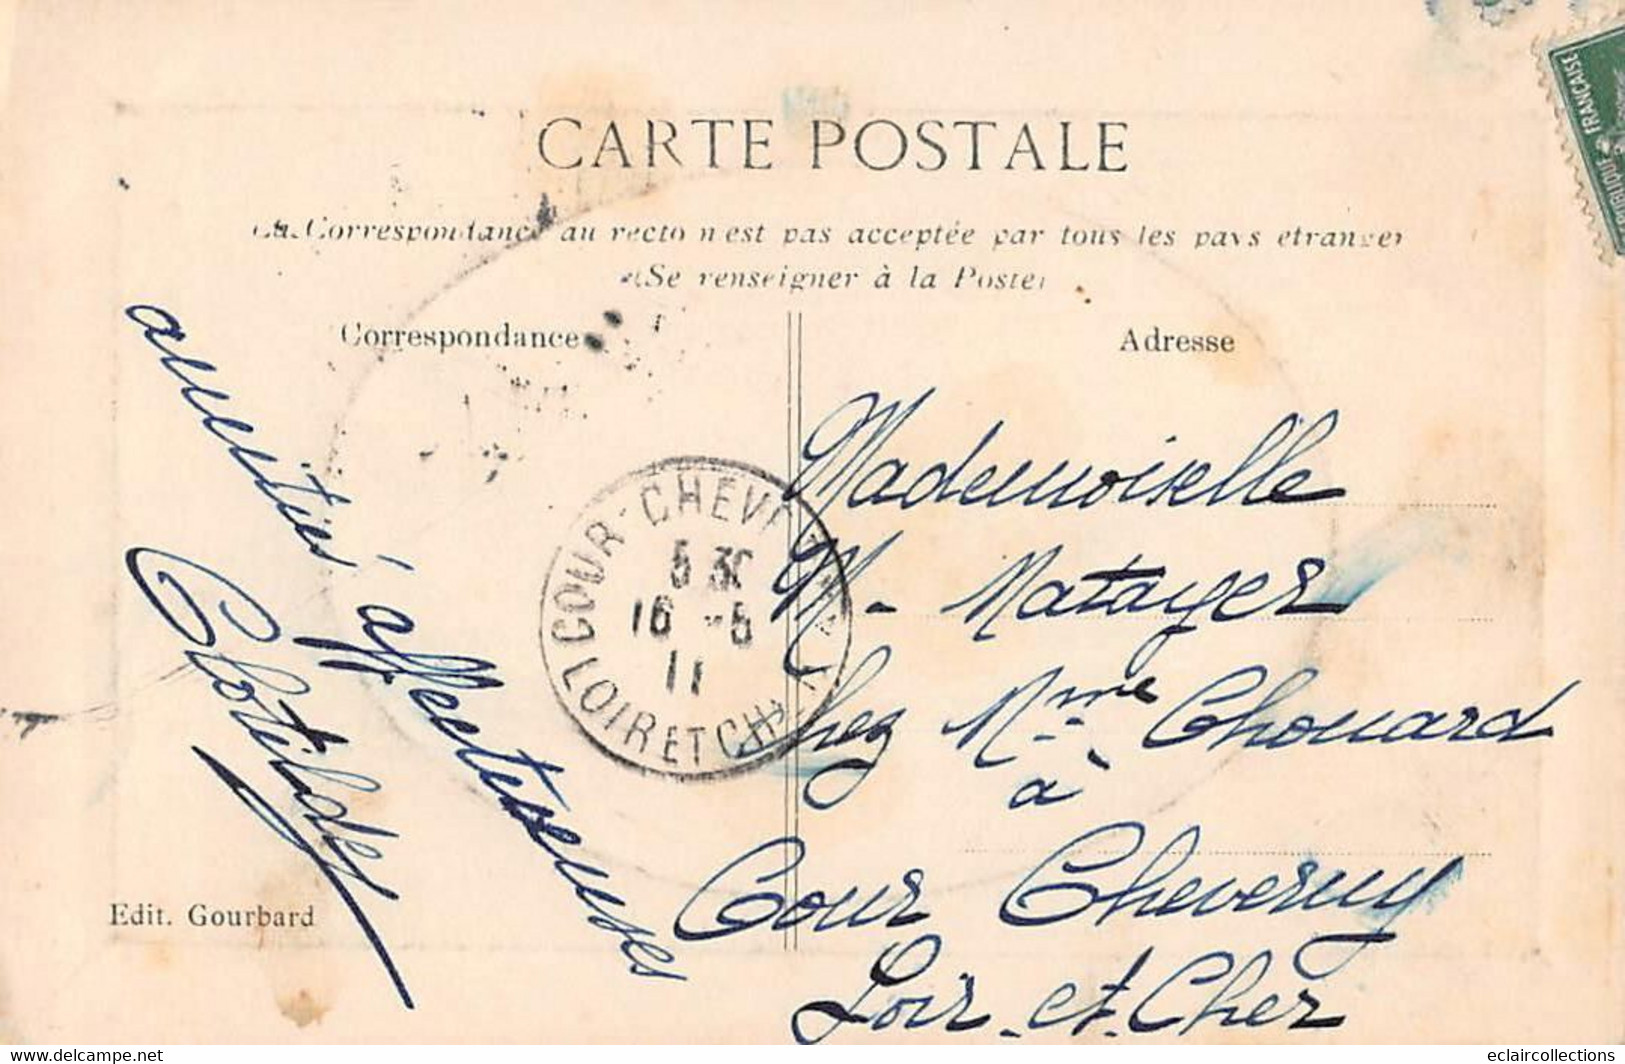 CARTE POSTALE
La Correspondance au recto n'est pas acceptée par tous les pays etrangers
(Se renseigner à la Poste)
Correspondance
Adresse
RÉPUBLIQUE FRANÇAISE
amitiés affectueuses
Clotilde
COUR-CHEVERNY
5 30
16 -5
11
LOIR ET CHER
Mademoiselle
M. Matayer
chez Mme Chouard
à
Cour Cheverny
Loir et Cher
Edit. Gourbard
eclaircollections